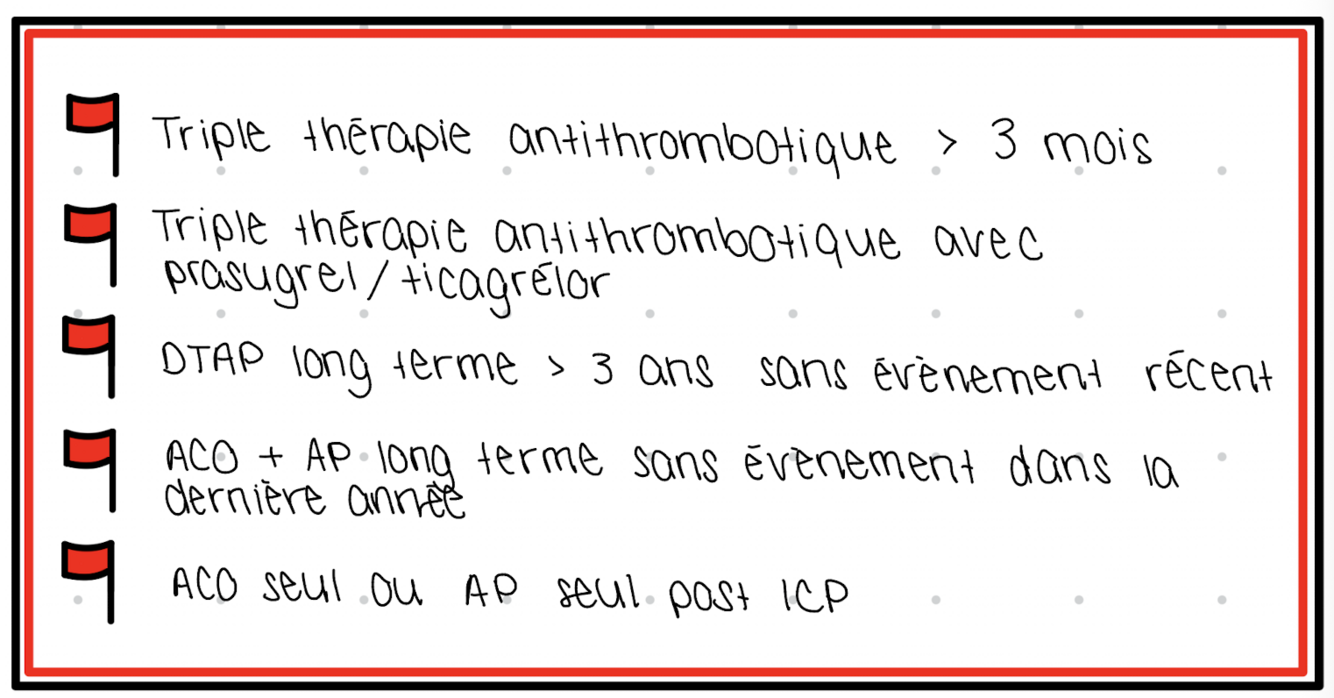 Triple thérapie antithrombotique > 3 mois
Triple thérapie antithrombotique avec
prasugrel/ticagrélor
DTAP long terme > 3 ans sans évènement récent
ACO + AP long terme sans évènement dans la
dernière année
ACO seul ou AP seul post ICP